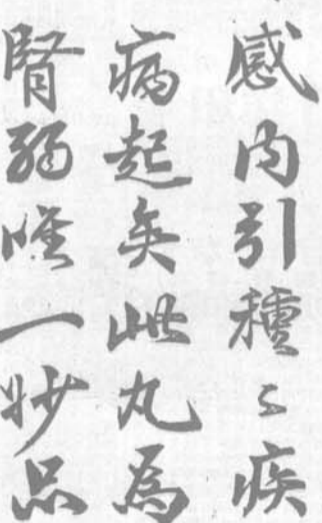 感内引種〻疾
病起矣此丸爲
腎弱唯一妙品